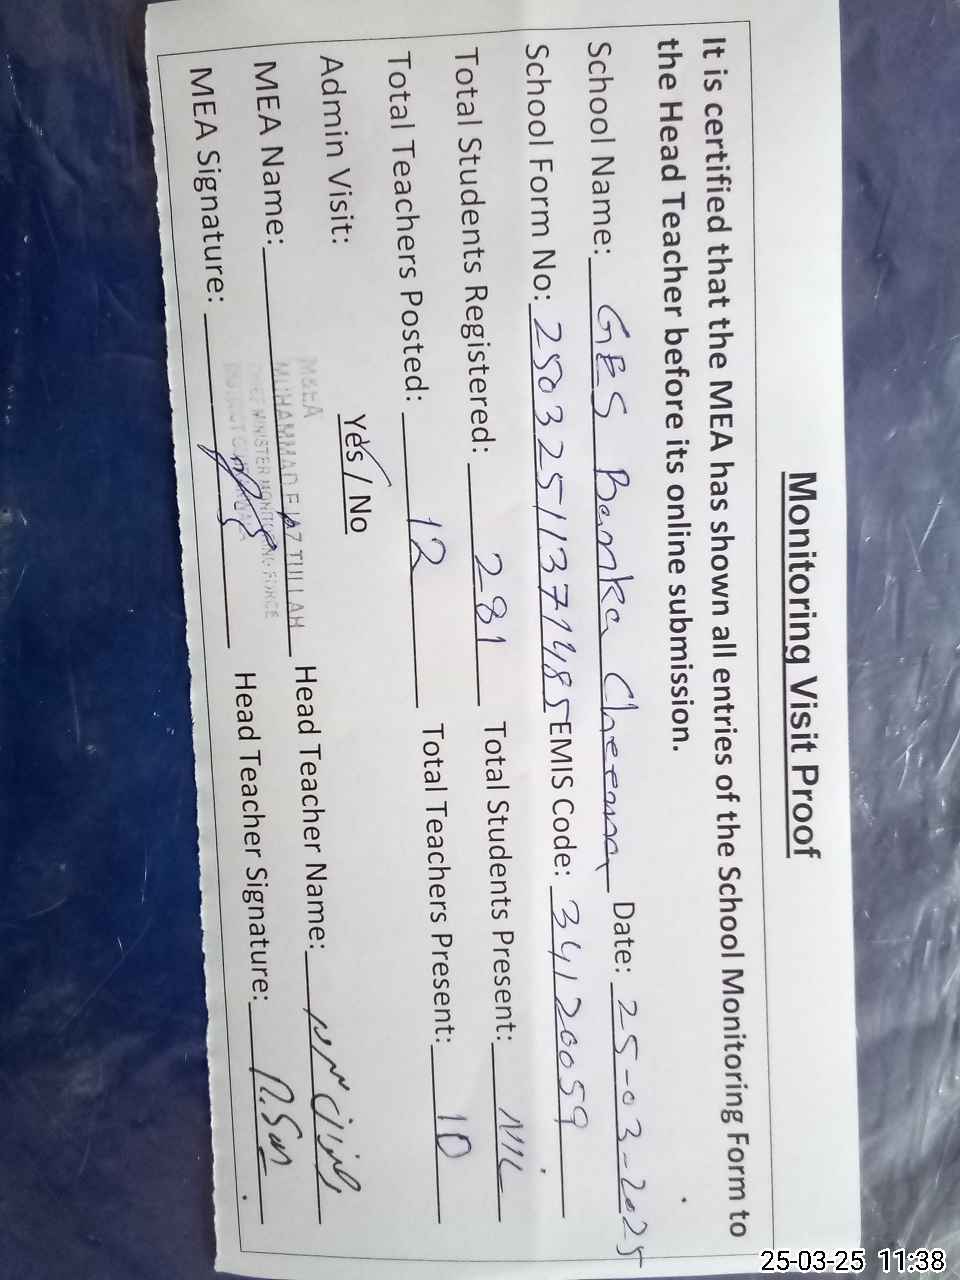 Monitoring Visit Proof
It is certified that the MEA has shown all entries of the School Monitoring Form to
the Head Teacher before its online submission.
School Name: GES Banka Cheema Date: 25-03-2025
School Form No: 250325113771485 EMIS Code: 34120059
Total Students Registered: 281 Total Students Present: NIL
Total Teachers Posted: 12 Total Teachers Present: 10
Admin Visit: Yes / No
M&EA
MEA Name: MUHAMMAD FIAZ TULLAH Head Teacher Name:
CHIEF MINISTER MONITORING FORCE
MEA Signature: Head Teacher Signature:
25-03-25 11:38